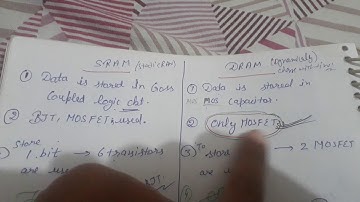 SRAM (Static RAM)
① Data is stored in Cross
Coupled logic ckt.
② BJT, MOSFET used.
Store
1 bit → 6 transistors
are u
BJT.
DRAM
① Data is stored in
MOS Capacitor.
② Only MOSFET
③ To
store → 2 MOSFET
are u